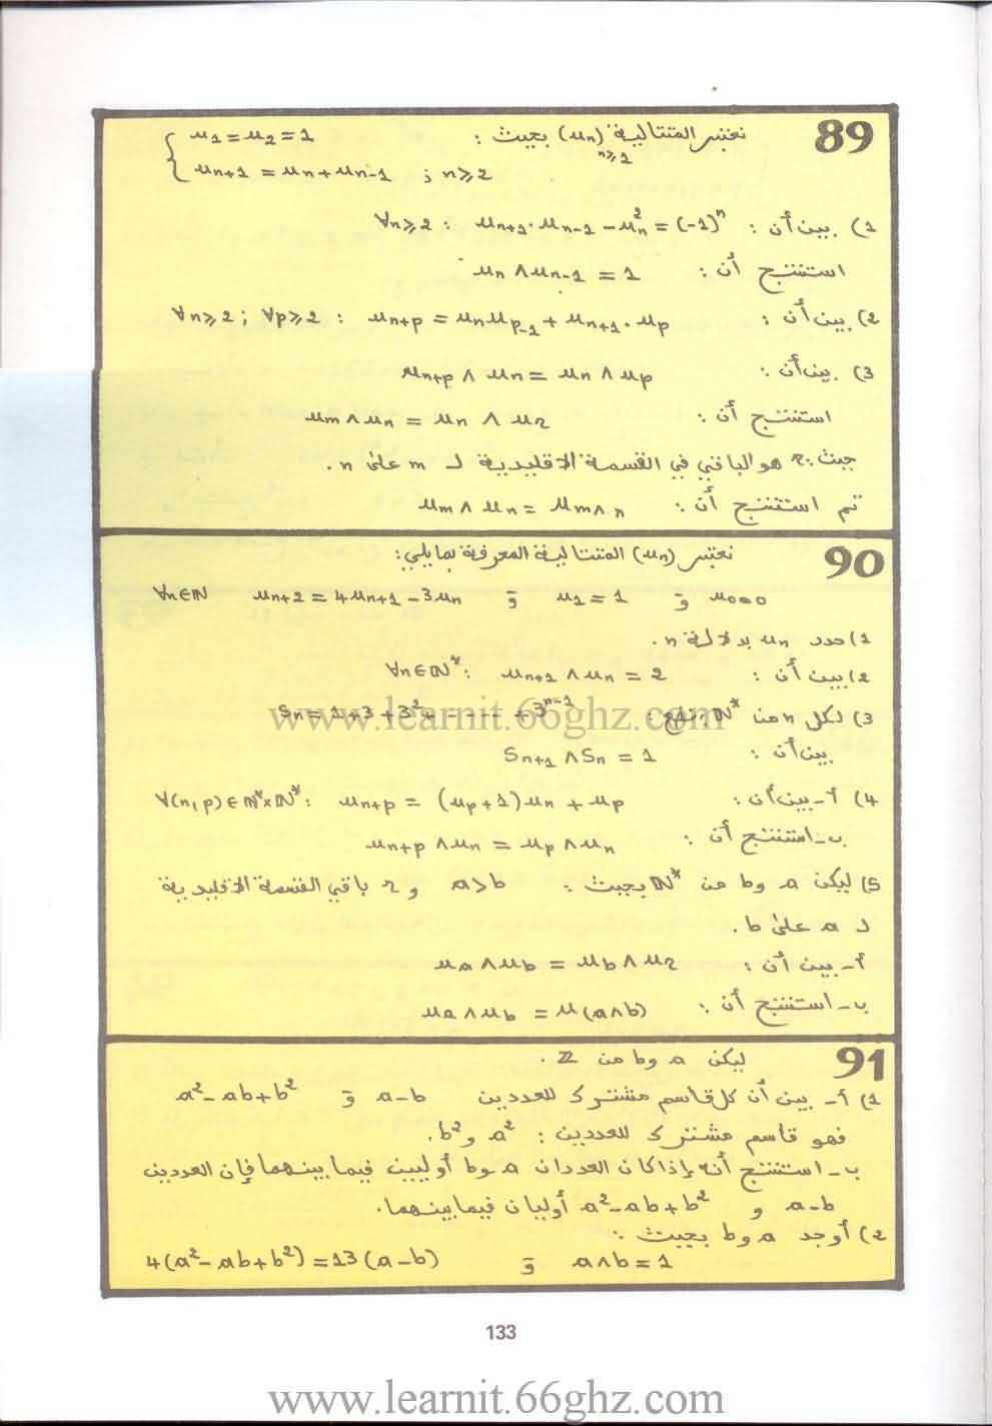 89
نعتبر المتتالية (un) n≥1 بحيث : { u1 = u2 = 1
un+1 = un + un-1 ; n≥2
1) بين أن : ∀n≥2 : un+1 · un-1 - un² = (-1)^n
استنتج أن : un ∧ un-1 = 1
2) بين أن : ∀n≥2 ; ∀p≥2 : un+p = un up-1 + un+1 · up
3) بين أن : un+p ∧ un = un ∧ up
استنتج أن : um ∧ un = un ∧ ur
حيث : r هو الباقي في القسمة الاقليدية لـ m على n .
تم استنتج أن : um ∧ un = um∧n
90
نعتبر (un) المتتالية المعرفة بمايلي :
u0 = 0 و u1 = 1 و ∀n∈ℕ un+2 = 4un+1 - 3un
1) حدد un بدلالة n .
2) بين أن : ∀n∈ℕ* : un+1 ∧ un = 1
3) لكل n من ℕ* نضع : Sn = 1 + 3 + 3² + ---- + 3^n-1
بين أن : Sn+1 ∧ Sn = 1
4) أ - بين أن : ∀(n,p)∈ℕ*×ℕ* : un+p = (up+1)un + up
ب - استنتج أن : un+p ∧ un = up ∧ un
5) ليكن a و b من ℕ* بحيث : a > b و r باقي القسمة الاقليدية
لـ a على b .
أ - بين أن : ua ∧ ub = ub ∧ ur
ب - استنتج أن : ua ∧ ub = u(a∧b)
91
ليكن a و b من ℤ .
1) أ - بين أن كل قاسم مشترك للعددين a-b و a²-ab+b²
فهو قاسم مشترك للعددين : a² و b² .
ب - استنتج أنه إذا كان العددان a و b أوليين فيما بينهما فإن العددين
a-b و a²-ab+b² أوليان فيما بينهما .
2) أوجد a و b بحيث :
a∧b = 1 و 4(a²-ab+b²) = 13(a-b)
133
www.learnit.66ghz.com
www.learnit.66ghz.com